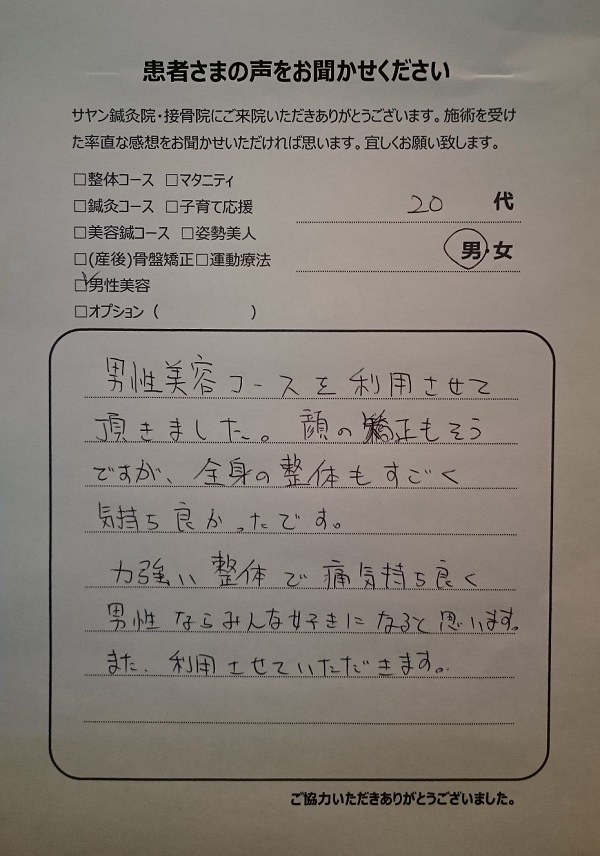 患者さまの声をお聞かせください
サヤン鍼灸院・接骨院にご来院いただきありがとうございます。施術を受け
た率直な感想をお聞かせいただければ思います。宜しくお願い致します。
□整体コース □マタニティ
□鍼灸コース □子育て応援
□美容鍼コース □姿勢美人
□(産後)骨盤矯正□運動療法
☑男性美容
□オプション ( )
20 代
男・女
男性美容コースを利用させて
頂きました。顔の矯正もそう
ですが、全身の整体もすごく
気持ち良かったです。
力強い整体で痛気持ち良く
男性ならみんな好きになると思います。
また、利用させていただきます。
ご協力いただきありがとうございました。